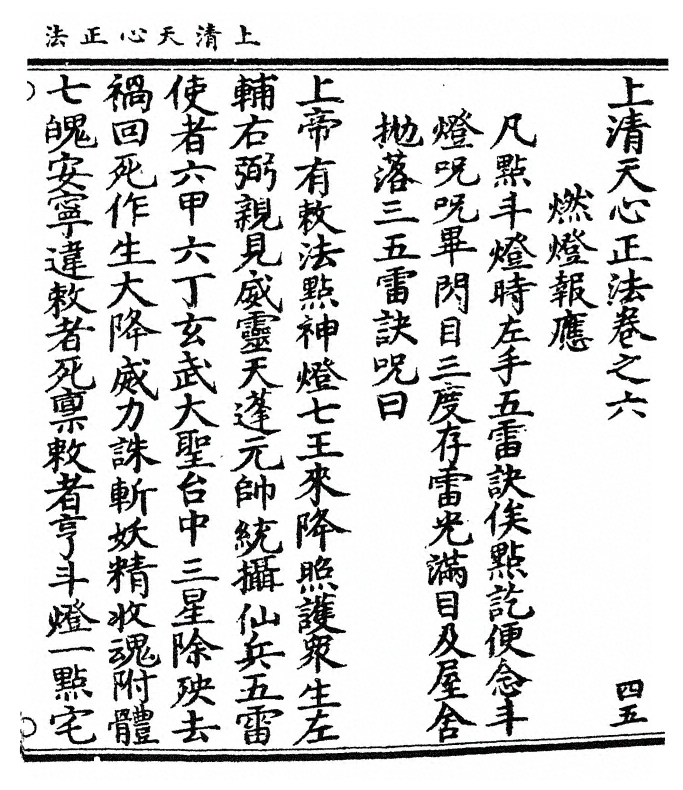 上清天心正法
上清天心正法卷之六
燃燈報應
凡點斗燈時左手五雷訣俟點訖便念斗
燈呪呪畢閃目三度存雷光滿目及屋舍
拋落三五雷訣呪曰
上帝有敕法點神燈七王來降照護眾生左
輔右弼親見威靈天蓬元帥統攝仙兵五雷
使者六甲六丁玄武大聖台中三星除殃去
禍回死作生大降威力誅斬妖精收魂附體
七魄安寧違敕者死禀敕者亨斗燈一點宅
四五